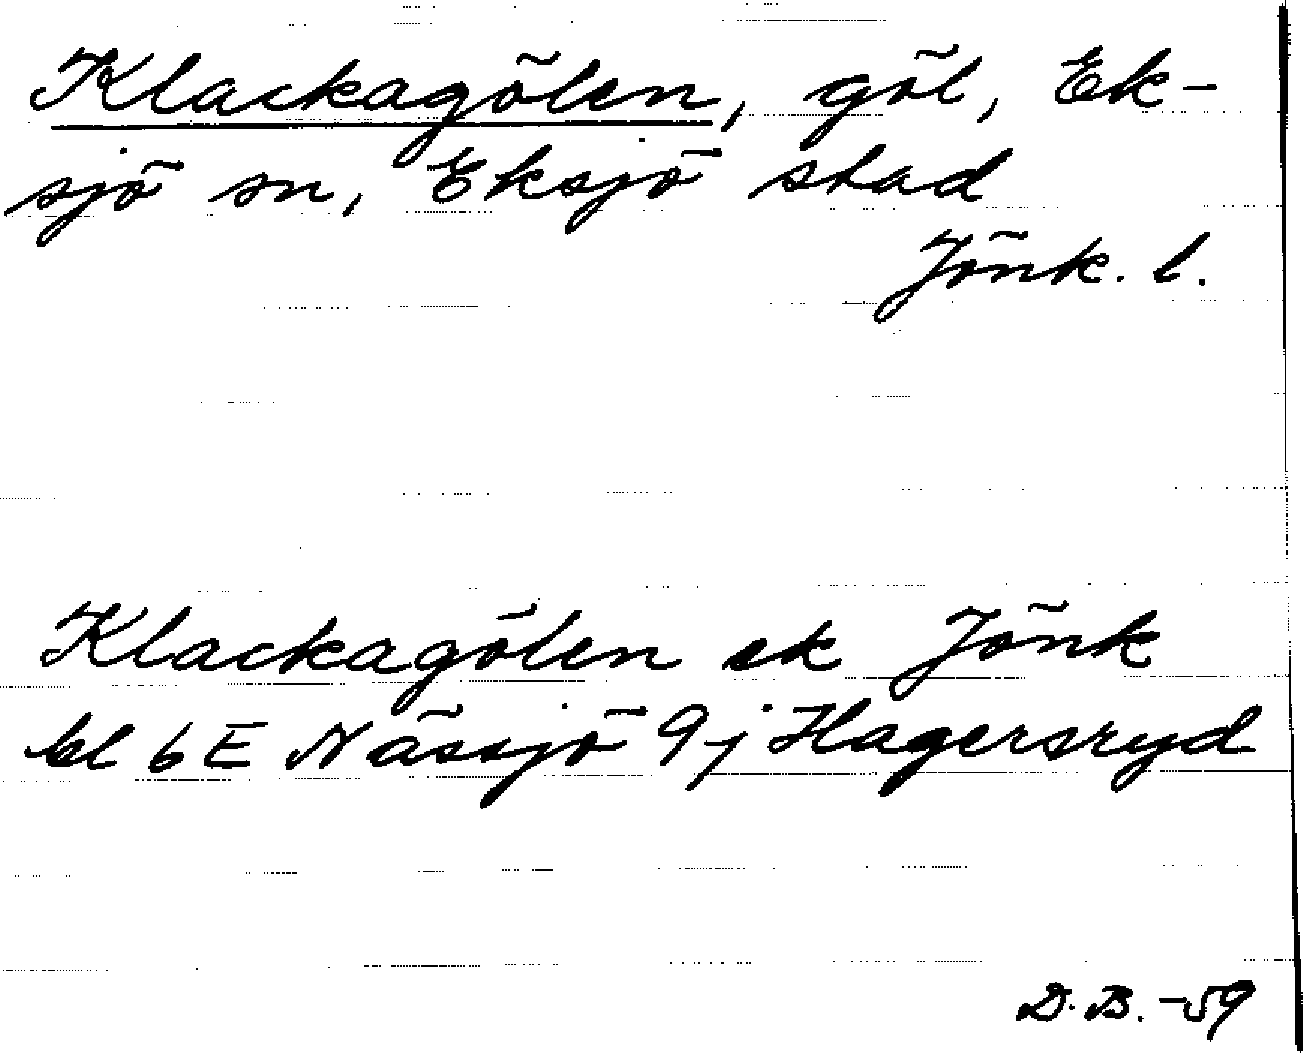 Klackagölen, göl, Ek-
sjö sn, Eksjö stad
Jönk. l.
Klackagölen ek Jönk
bl 6 E Nässjö 9 j Hagersryd
D.B. -59